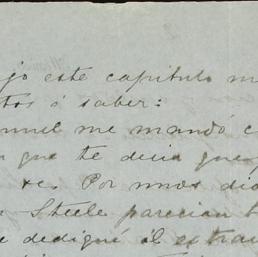 jo este capitulo m
tos ó saber:
nuel me mandó c
que te decia que
Por unos dia
Steele parecian b
e dediqué al estra